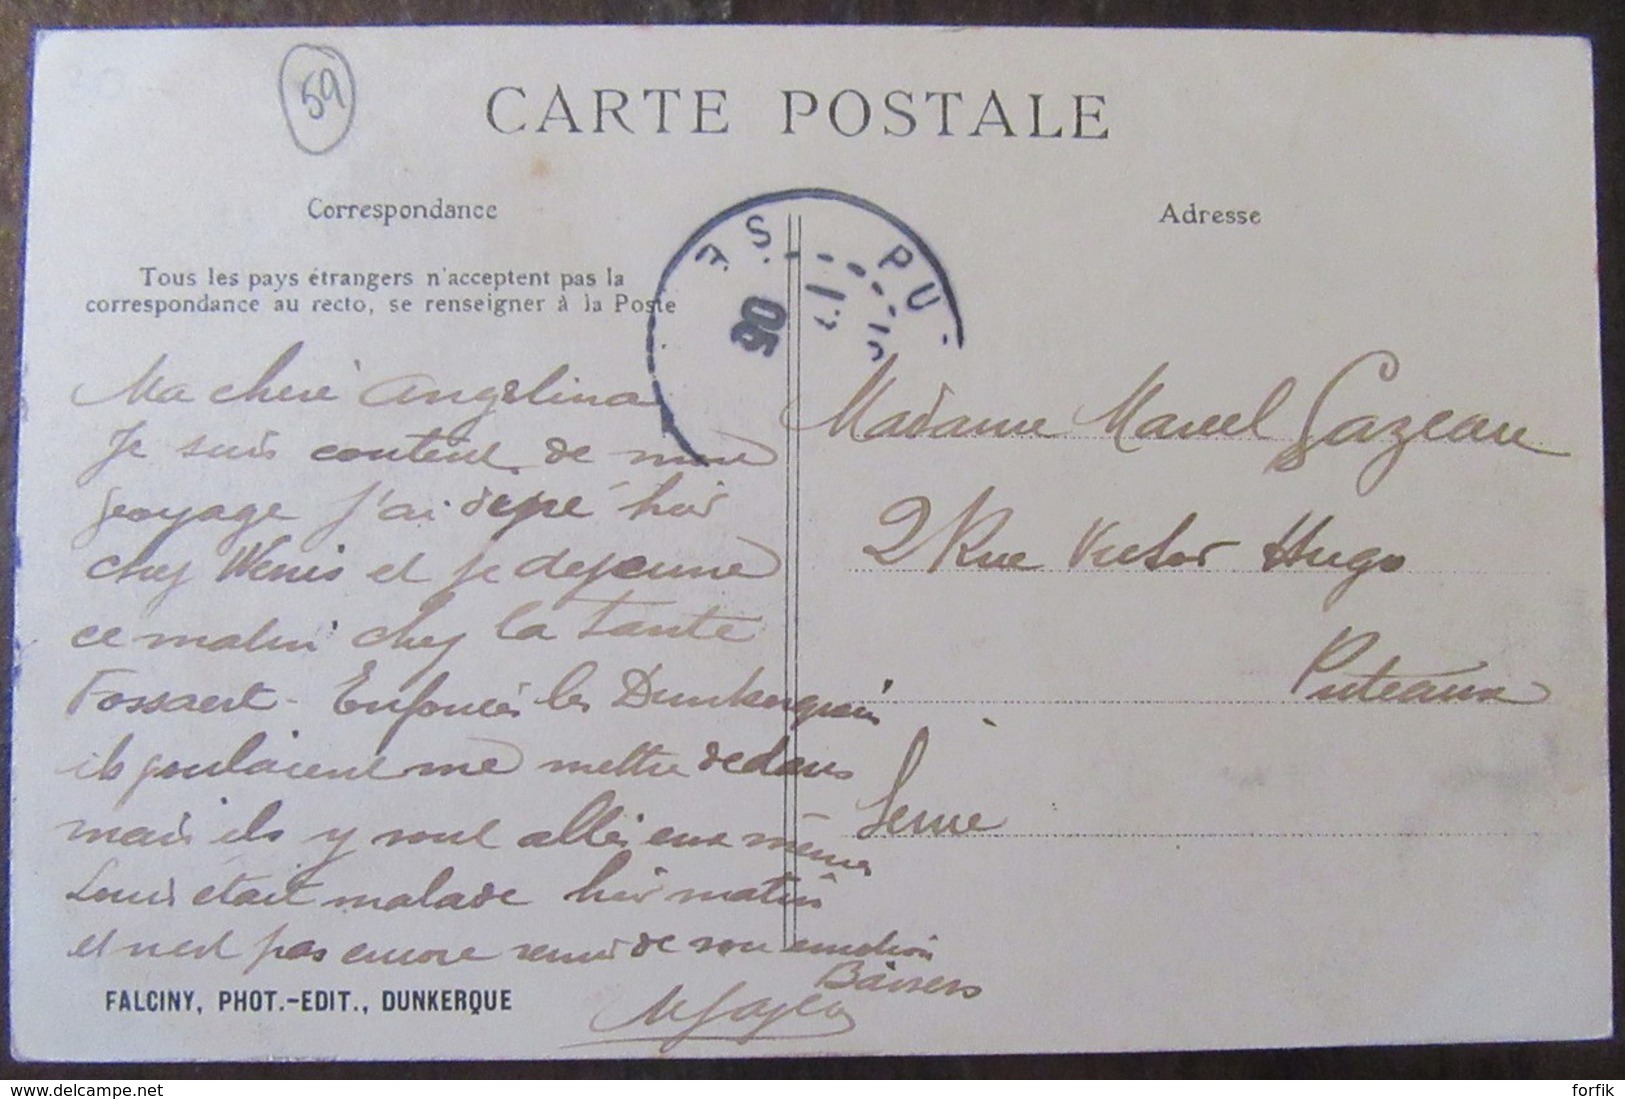 59
CARTE POSTALE
Correspondance
Adresse
Tous les pays étrangers n'acceptent pas la
correspondance au recto, se renseigner à la Poste
PU
S.
05
Ma cheré Angelina
Je suis content de mon
voyage j'ai depé hier
chez Wenis et je dejeune
ce matin chez la tante
Fossaert - Enfoncés les Dunkerquois
ils voulaient me mettre dedans
mais ils y sont allés eux mêmes
Louis était malade hier matin
et n'est pas encore remis de son emotion
Baisers
Madame Marcel Gazeau
2 Rue Victor Hugo
Puteaux
Seine
FALCINY, PHOT.-EDIT., DUNKERQUE
www.delcampe.net
forfik